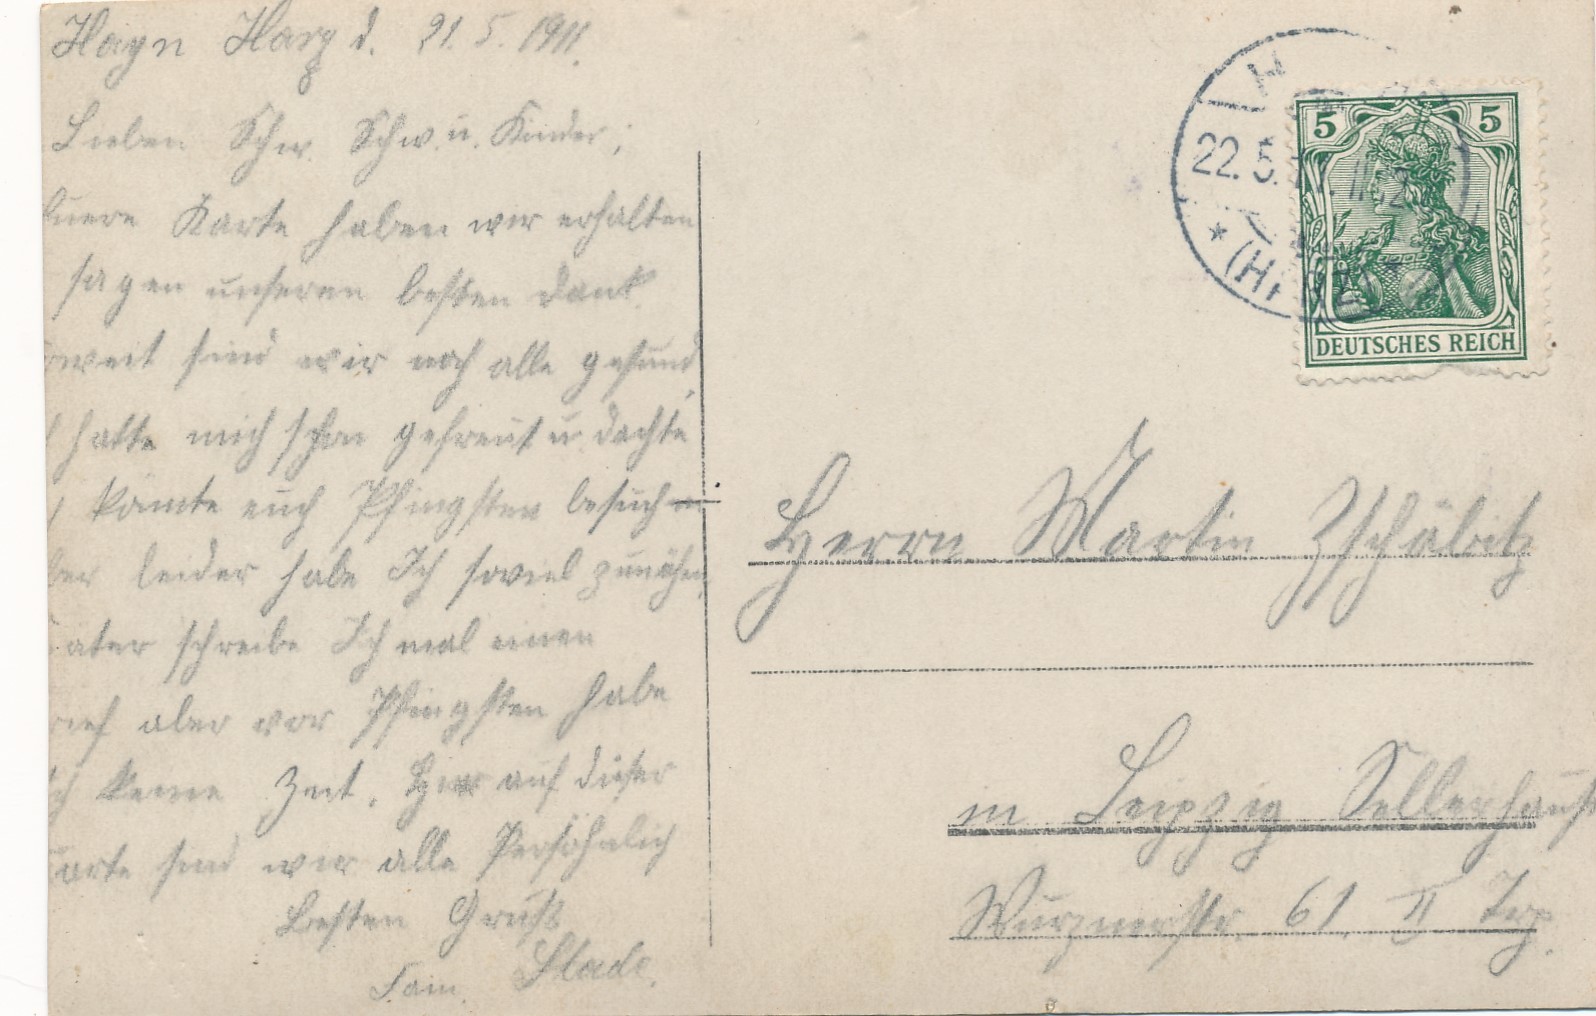 Hayn Harz d. 21. 5. 1911.
Lieben Schw. Schw. u. Kinder;
uere Karte haben wir erhalten
sagen unseren besten Dank.
oweit sind wir noch alle gesund,
hatte mich schon gefreut u. dachte
könnte euch Pfingsten besuchen
ber leider habe Ich soviel zunähen,
äter schreibe Ich mal einen
rief aber vor Pfingsten habe
ch keine Zeit. Hier auf dieser
arte sind wir alle Persöhnlich
Besten Gruß
Fam. Stade.
22. 5. 11
* (HARZ) *
5 5
DEUTSCHES REICH
Herrn Martin Zschäbitz
in Leipzig Sellerhaus
Wurznerstr. 61. II Trp.